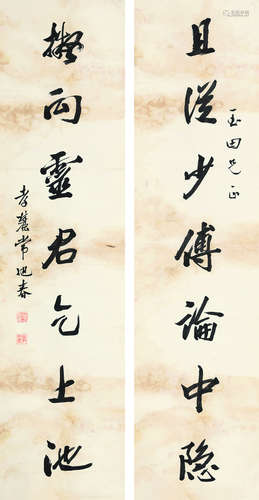 且從少傅論中隱
玉田兄正
擬向靈君乞上池
孝慈常旭春